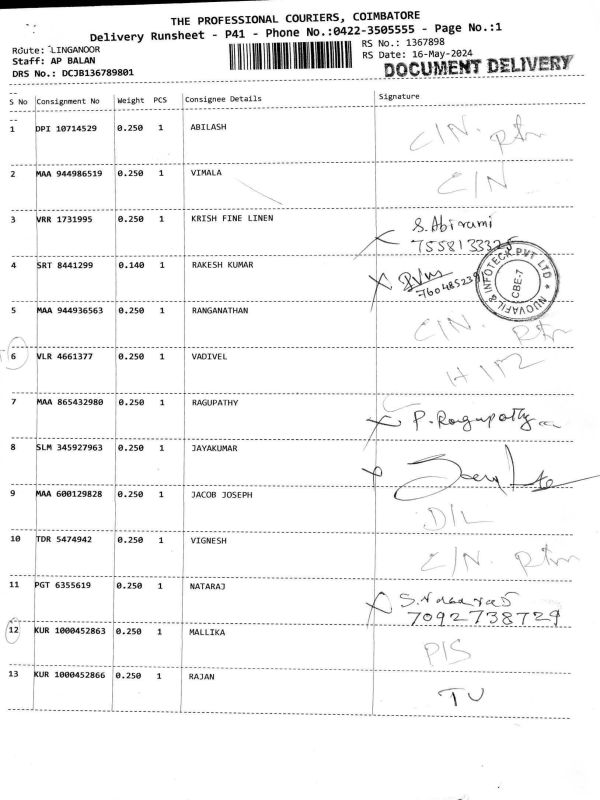 THE PROFESSIONAL COURIERS, COIMBATORE
Delivery Runsheet - P41 - Phone No.:0422-3505555 - Page No.:1
Route: LINGANOOR
RS No.: 1367898
Staff: AP BALAN
RS Date: 16-May-2024
DRS No.: DCJB136789801
DOCUMENT DELIVERY
--
S No Consignment No Weight PCS Consignee Details Signature
--
1 DPI 10714529 0.250 1 ABILASH C/N. Rtn
2 MAA 944986519 0.250 1 VIMALA C/N
3 VRR 1731995 0.250 1 KRISH FINE LINEN S. Abirami
7558133325
4 SRT 8441299 0.140 1 RAKESH KUMAR
NUOVAFIL & INFOTECK PVT LTD *
CBE-7
5 MAA 944936563 0.250 1 RANGANATHAN C/N. Rtn
6 VLR 4661377 0.250 1 VADIVEL
7 MAA 865432980 0.250 1 RAGUPATHY P. Ragupathy
8 SLM 345927963 0.250 1 JAYAKUMAR
9 MAA 600129828 0.250 1 JACOB JOSEPH D/L
10 TDR 5474942 0.250 1 VIGNESH C/N. Rtn
11 PGT 6355619 0.250 1 NATARAJ
7092738729
12 KUR 1000452863 0.250 1 MALLIKA P/S
13 KUR 1000452866 0.250 1 RAJAN